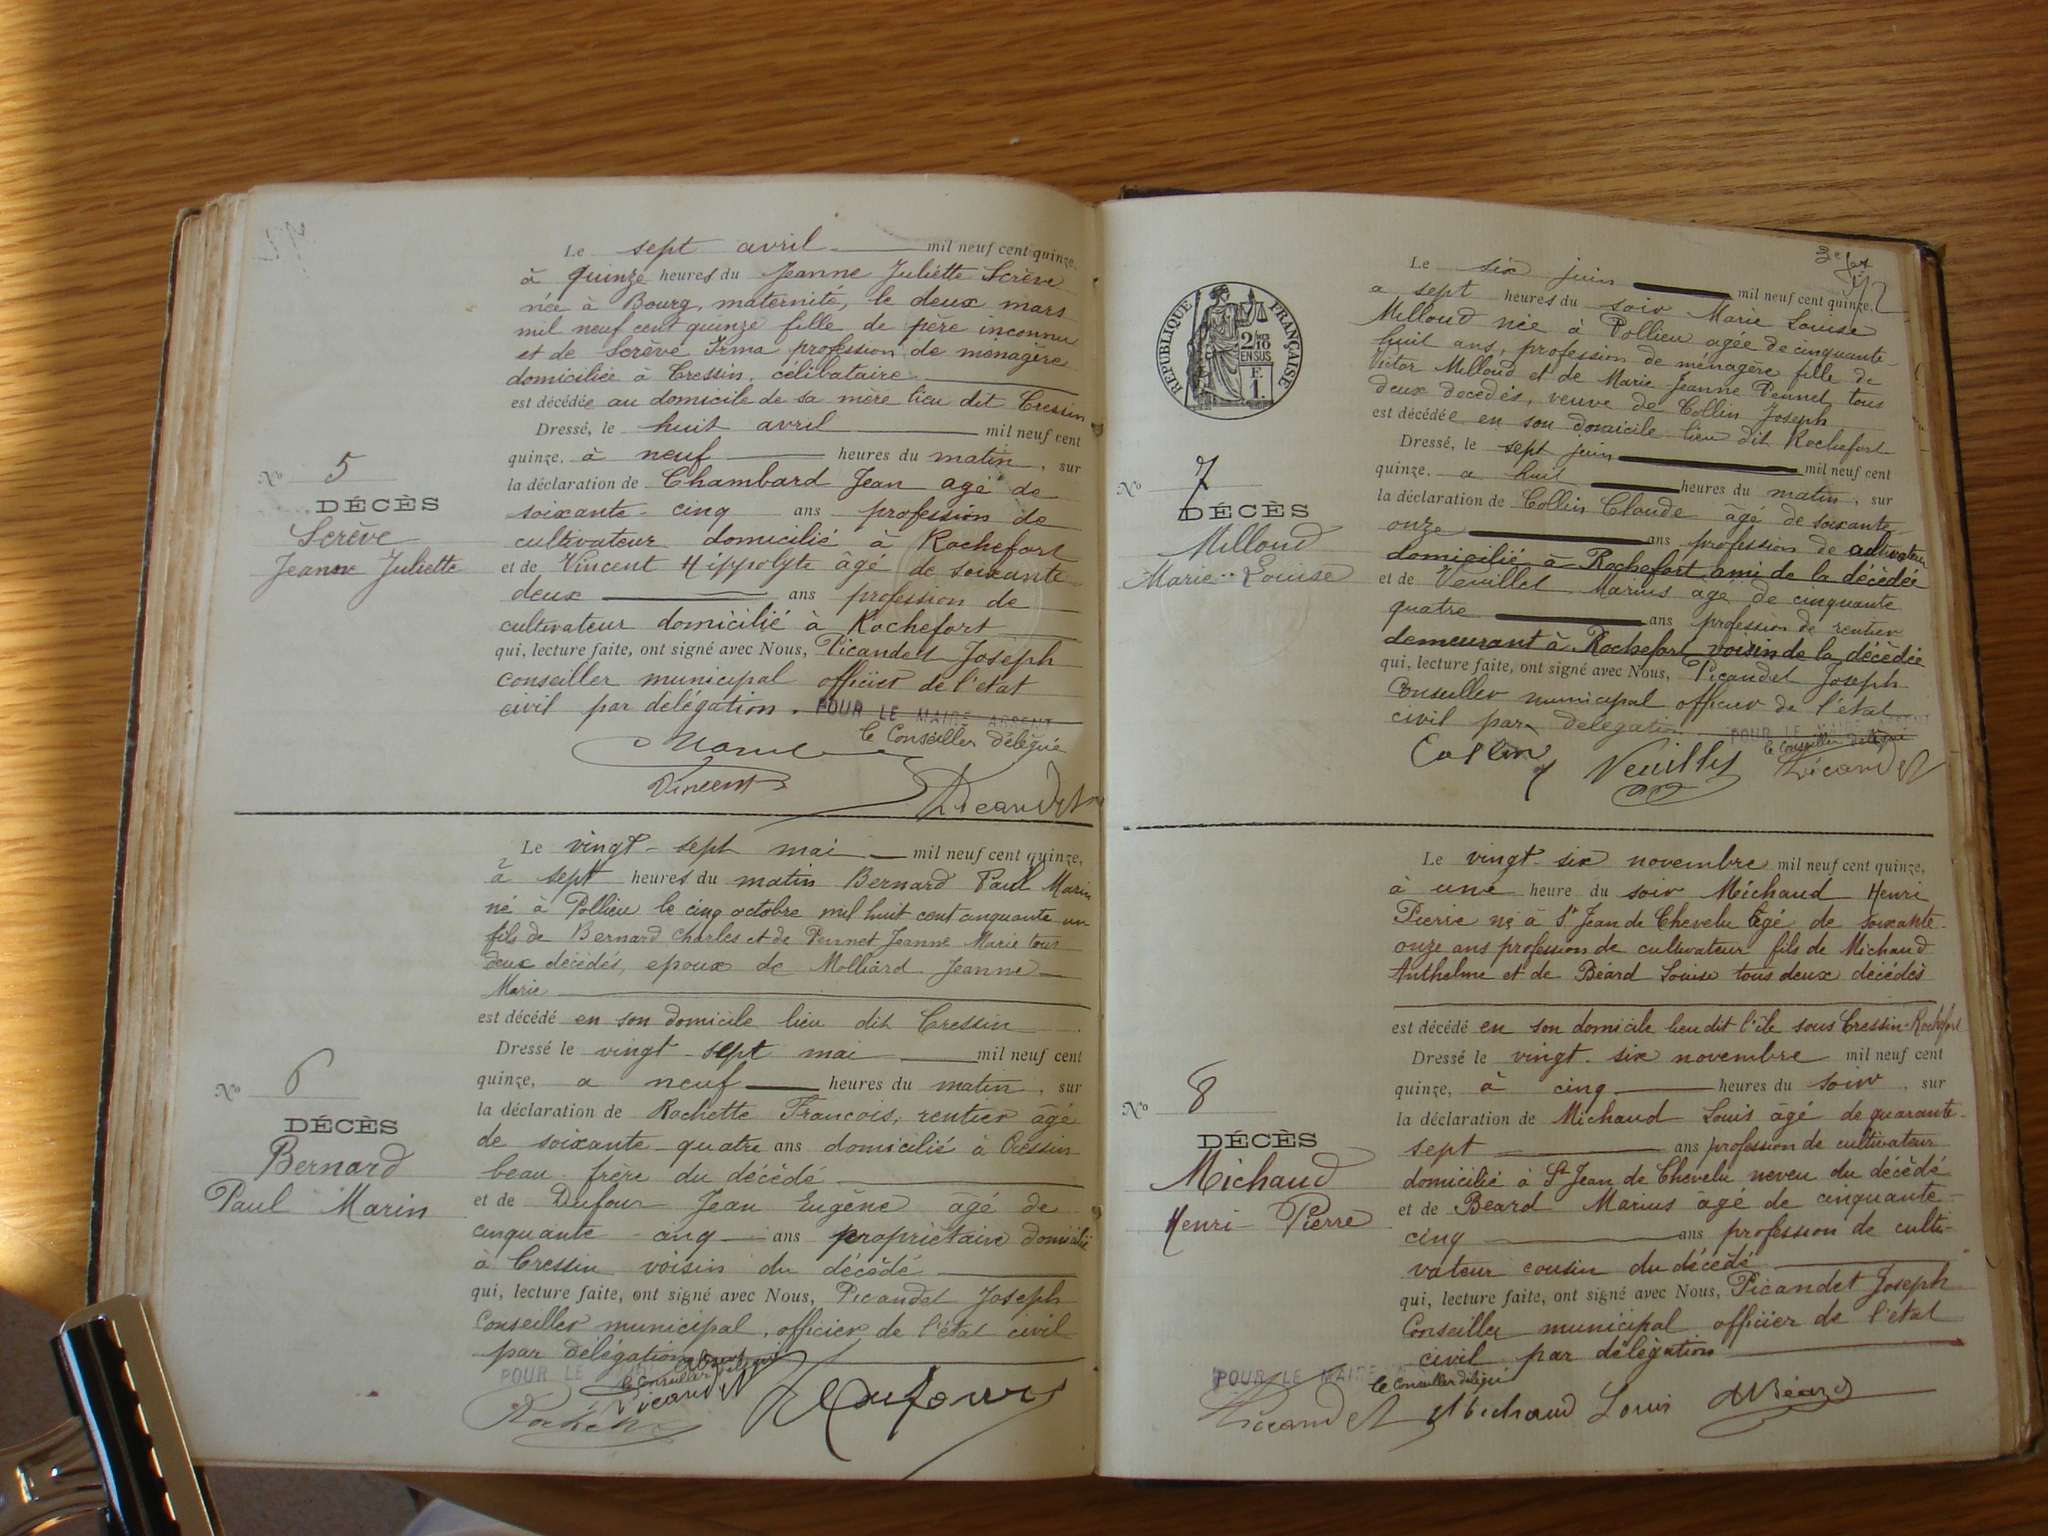 Le sept avril mil neuf cent quinze,
à quinze heures du Jeanne Juliette Scrève
née à Bourg, maternité, le deux mars
mil neuf cent quinze fille de père inconnu
et de Scrève Irma profession de ménagère
domiciliée à Cressin, célibataire
est décédée au domicile de sa mère lieu dit Cressin
Dressé, le huit avril mil neuf cent
quinze, à neuf heures du matin, sur
la déclaration de Chambard Jean agé de
soixante-cinq ans profession de
cultivateur domicilié à Rochefort
et de Vincent Hippolyte âgé de soixante
deux ans profession de
cultivateur domicilié à Rochefort
qui, lecture faite, ont signé avec Nous, Picandet Joseph
conseiller municipal officier de l'état
civil par délégation. POUR LE MAIRE ABSENT
le Conseiller délégué
Vincent
Picandet
No 5
DÉCÈS
Scrève
Jeanne Juliette
Le vingt-sept mai mil neuf cent quinze,
à sept heures du matin Bernard Paul Marin
né à Pollieu le cinq octobre mil huit cent cinquante un
fils de Bernard Charles et de Pennet Jeanne Marie tous
deux décédés, epoux de Molliard Jeanne
Marie
est décédé en son domicile lieu dit Cressin
Dressé le vingt-sept mai mil neuf cent
quinze, a neuf heures du matin, sur
la déclaration de Rochette Francois, rentier âgé
de soixante-quatre ans domicilié à Cressin
beau-frère du décédé
et de Dufour Jean Eugène agé de
cinquante-cinq ans propriétaire domicilié
à Cressin voisin du décédé
qui, lecture faite, ont signé avec Nous, Picandet Joseph
Conseiller municipal, officier de l'état civil
par délégation
POUR LE
le Conseiller délégué
Picandet
Rochette Dufour
No 6
DÉCÈS
Bernard
Paul Marin
3e
RÉPUBLIQUE FRANÇAISE
2/10
EN SUS
F.
1.
Le six juin mil neuf cent quinze,
a sept heures du soir Marie Louise
Milloud née à Pollieu agée de cinquante-
huit ans, profession de ménagère fille de
Victor Milloud et de Marie Jeanne Pennet tous
deux decédés, veuve de Collin Joseph
est décédée en son domicile lieu dit Rochefort
Dressé, le sept juin mil neuf cent
quinze, a huit heures du matin, sur
la déclaration de Collin Claude âgé de soixante
onze ans profession de cultivateur
domicilié à Rochefort, ami de la décédée
et de Veuillet Marius age de cinquante
quatre ans profession de rentier
demeurant à Rochefort voisin de la décédée
qui, lecture faite, ont signé avec Nous, Picandet Joseph
Conseiller municipal officier de l'état
civil par délégation POUR LE MAIRE ABSENT
le Conseiller délégué
Collin Veuillet Picandet
No 7
DÉCÈS
Milloud
Marie-Louise
Le vingt-six novembre mil neuf cent quinze,
à une heure du soir Michaud Henri
Pierre né à St Jean de Chevelu âgé de soixante-
onze ans profession de cultivateur fils de Michaud
Anthelme et de Béard Louise tous deux décédés
est décédé en son domicile lieu dit l'île sous Cressin-Rochefort
Dressé le vingt-six novembre mil neuf cent
quinze, à cinq heures du soir, sur
la déclaration de Michaud Louis âgé de quarante-
sept ans profession de cultivateur
domicilié à St Jean de Chevelu neveu du décédé
et de Beard Marius âgé de cinquante-
cinq ans profession de culti-
vateur cousin du décédé
qui, lecture faite, ont signé avec Nous, Picandet Joseph
Conseiller municipal officier de l'état
civil par délégation
POUR LE MAIRE
le Conseiller délégué
Picandet Michaud Louis MBéard
No 8
DÉCÈS
Michaud
Henri-Pierre